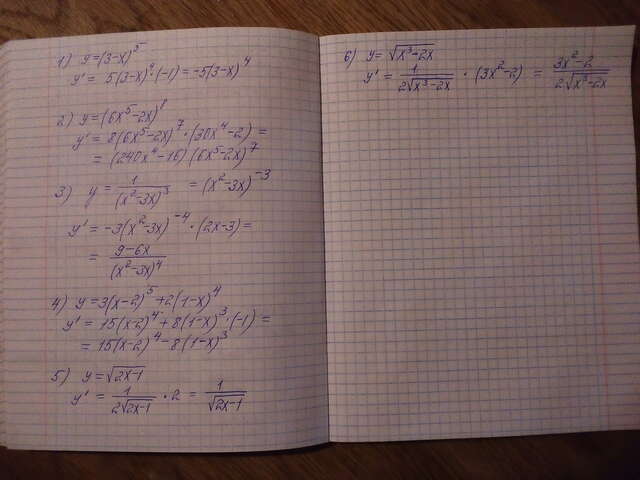 1) y=(3-x)^5
y' = 5(3-x)^4·(-1) = -5(3-x)^4
2) y=(6x^5-2x)^8
y' = 8(6x^5-2x)^7·(30x^4-2) =
= (240x^4-16)(6x^5-2x)^7
3) y = 1/(x^2-3x)^3 = (x^2-3x)^-3
y' = -3(x^2-3x)^-4·(2x-3)=
= 9-6x/(x^2-3x)^4
4) y=3(x-2)^5+2(1-x)^4
y' = 15(x-2)^4+8(1-x)^3·(-1) =
= 15(x-2)^4-8(1-x)^3
5) y=√(2x-1)
y' = 1/2√(2x-1) · 2 = 1/√(2x-1)
6) y= √(x^3-2x)
y' = 1/2√(x^3-2x) · (3x^2-2) = 3x^2-2/2√(x^3-2x)